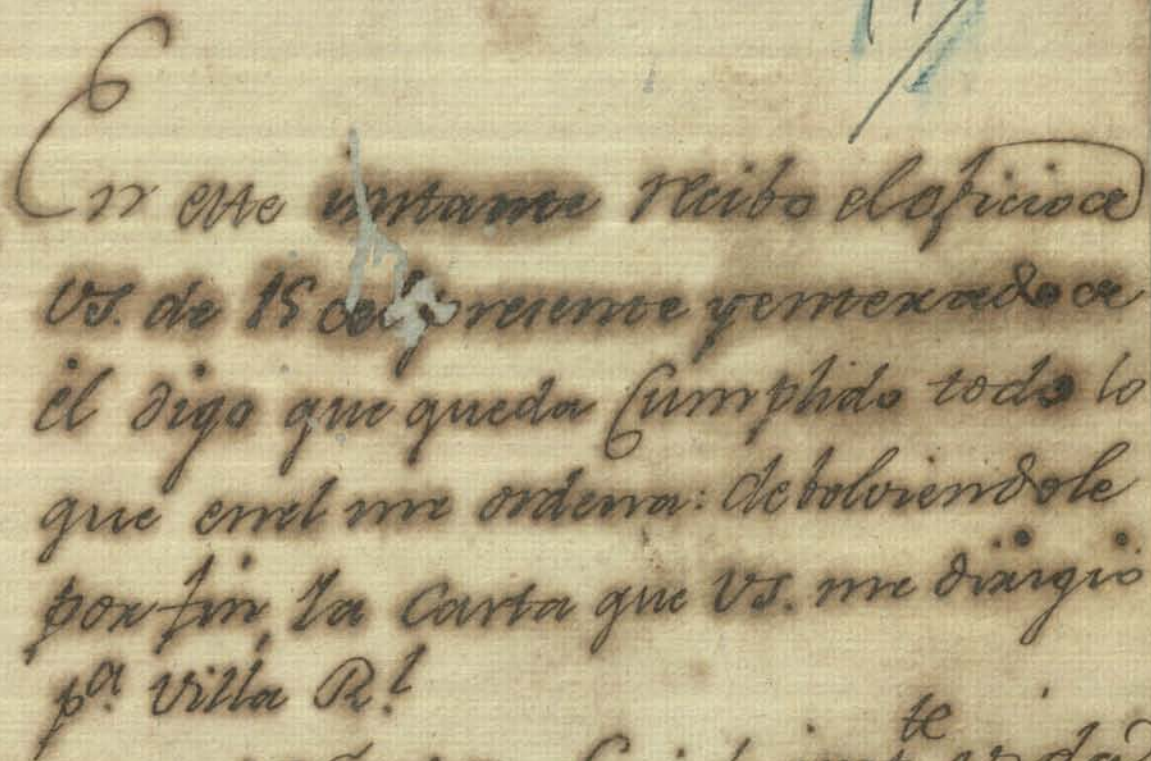 En este instante recibo el oficio de
VS. de 15 del presente y enterado de
él digo que queda Cumplido todo lo
que enel me ordena: debolviendole
por fin, la Carta que VS. me dirigió
pª. Villa R.l
te